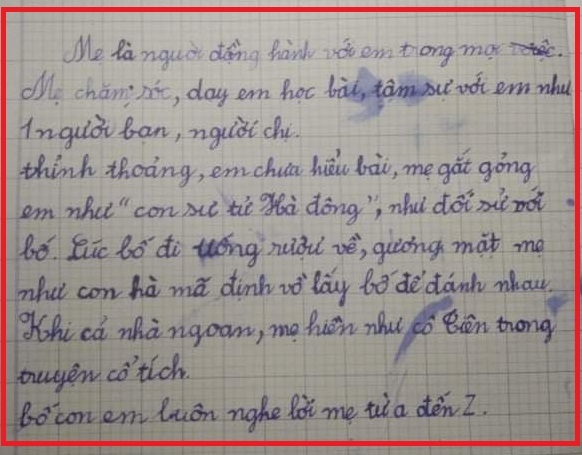 Mẹ là người đồng hành với em trong mọi việc.
Mẹ chăm sóc, dạy em học bài, tâm sự với em như
1 người bạn, người chị.
thỉnh thoảng, em chưa hiểu bài, mẹ gắt gỏng
em như "con sư tử Hà đông", như đối sử với
bố. Lúc bố đi uống rượu về, gương mặt mẹ
như con hà mã định vồ lấy bố để đánh nhau.
Khi cả nhà ngoan, mẹ hiền như cô tiên trong
truyện cổ tích.
bố con em luôn nghe lời mẹ từ a đến Z.